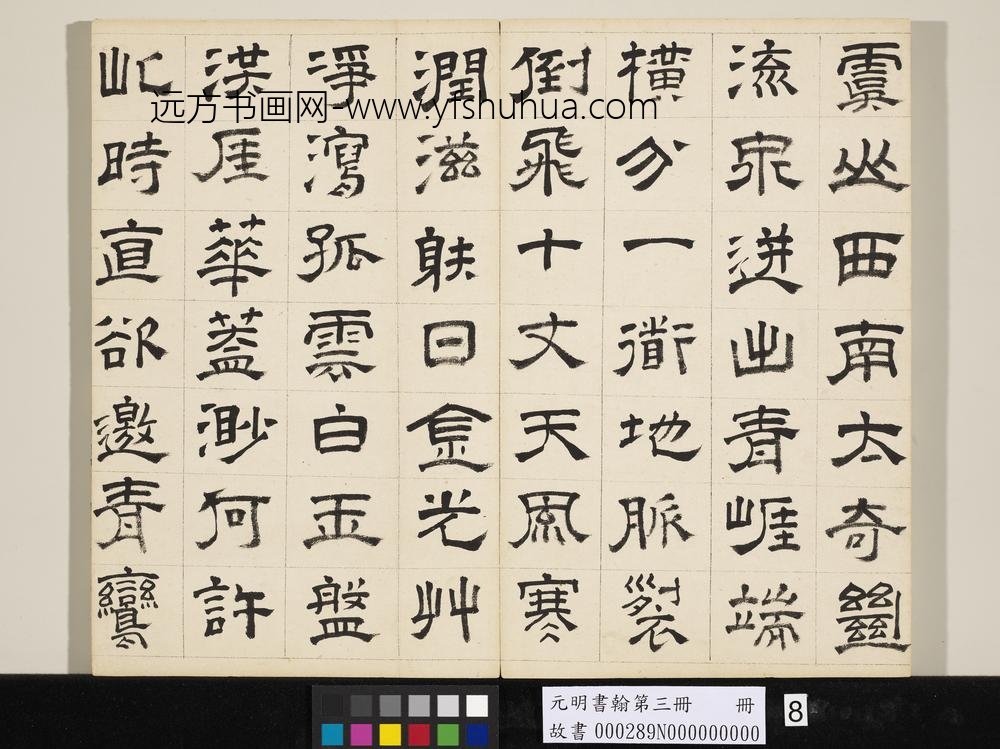 虞山西南太奇𢇍
流泉迸出青崕端
橫分一衜地脈裂
倒飛十丈天風寒
潤滋映日金光艸
淨瀉孤雲白玉盤
洪厓華蓋渺何許
此時直欲邀青鸞
远方书画网-www.yfshuhua.com
元明書翰第三冊 冊
故書 000289N000000000
8